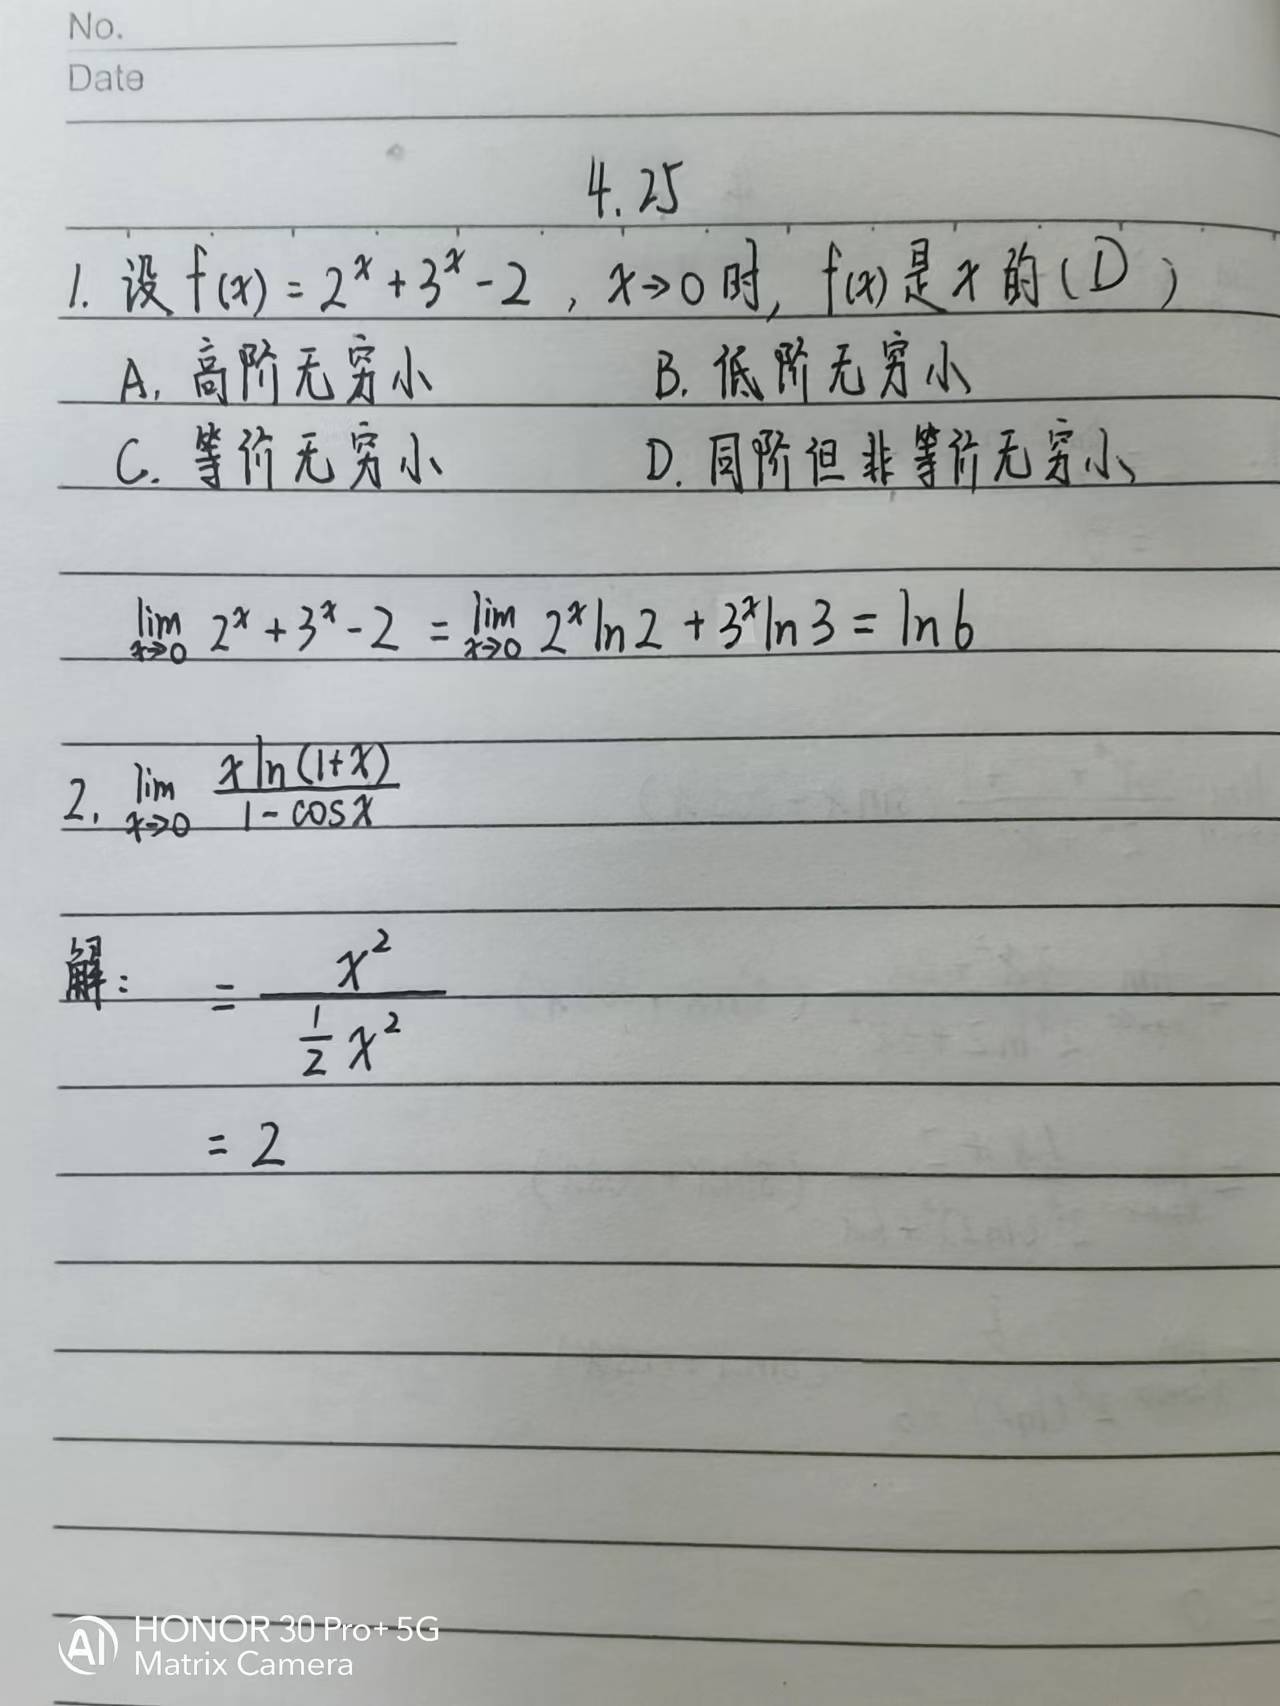 No.
Date
4.25
1. 设 f(x) = 2^x + 3^x - 2 , x→0 时, f(x) 是 x 的 ( D )
A. 高阶无穷小 B. 低阶无穷小
C. 等价无穷小 D. 同阶但非等价无穷小
lim_{x→0} 2^x + 3^x - 2 = lim_{x→0} 2^x ln2 + 3^x ln3 = ln6
2. lim_{x→0} \frac{x ln(1+x)}{1 - cosx}
解: = \frac{x^2}{\frac{1}{2} x^2}
= 2
AI HONOR 30 Pro+ 5G
Matrix Camera